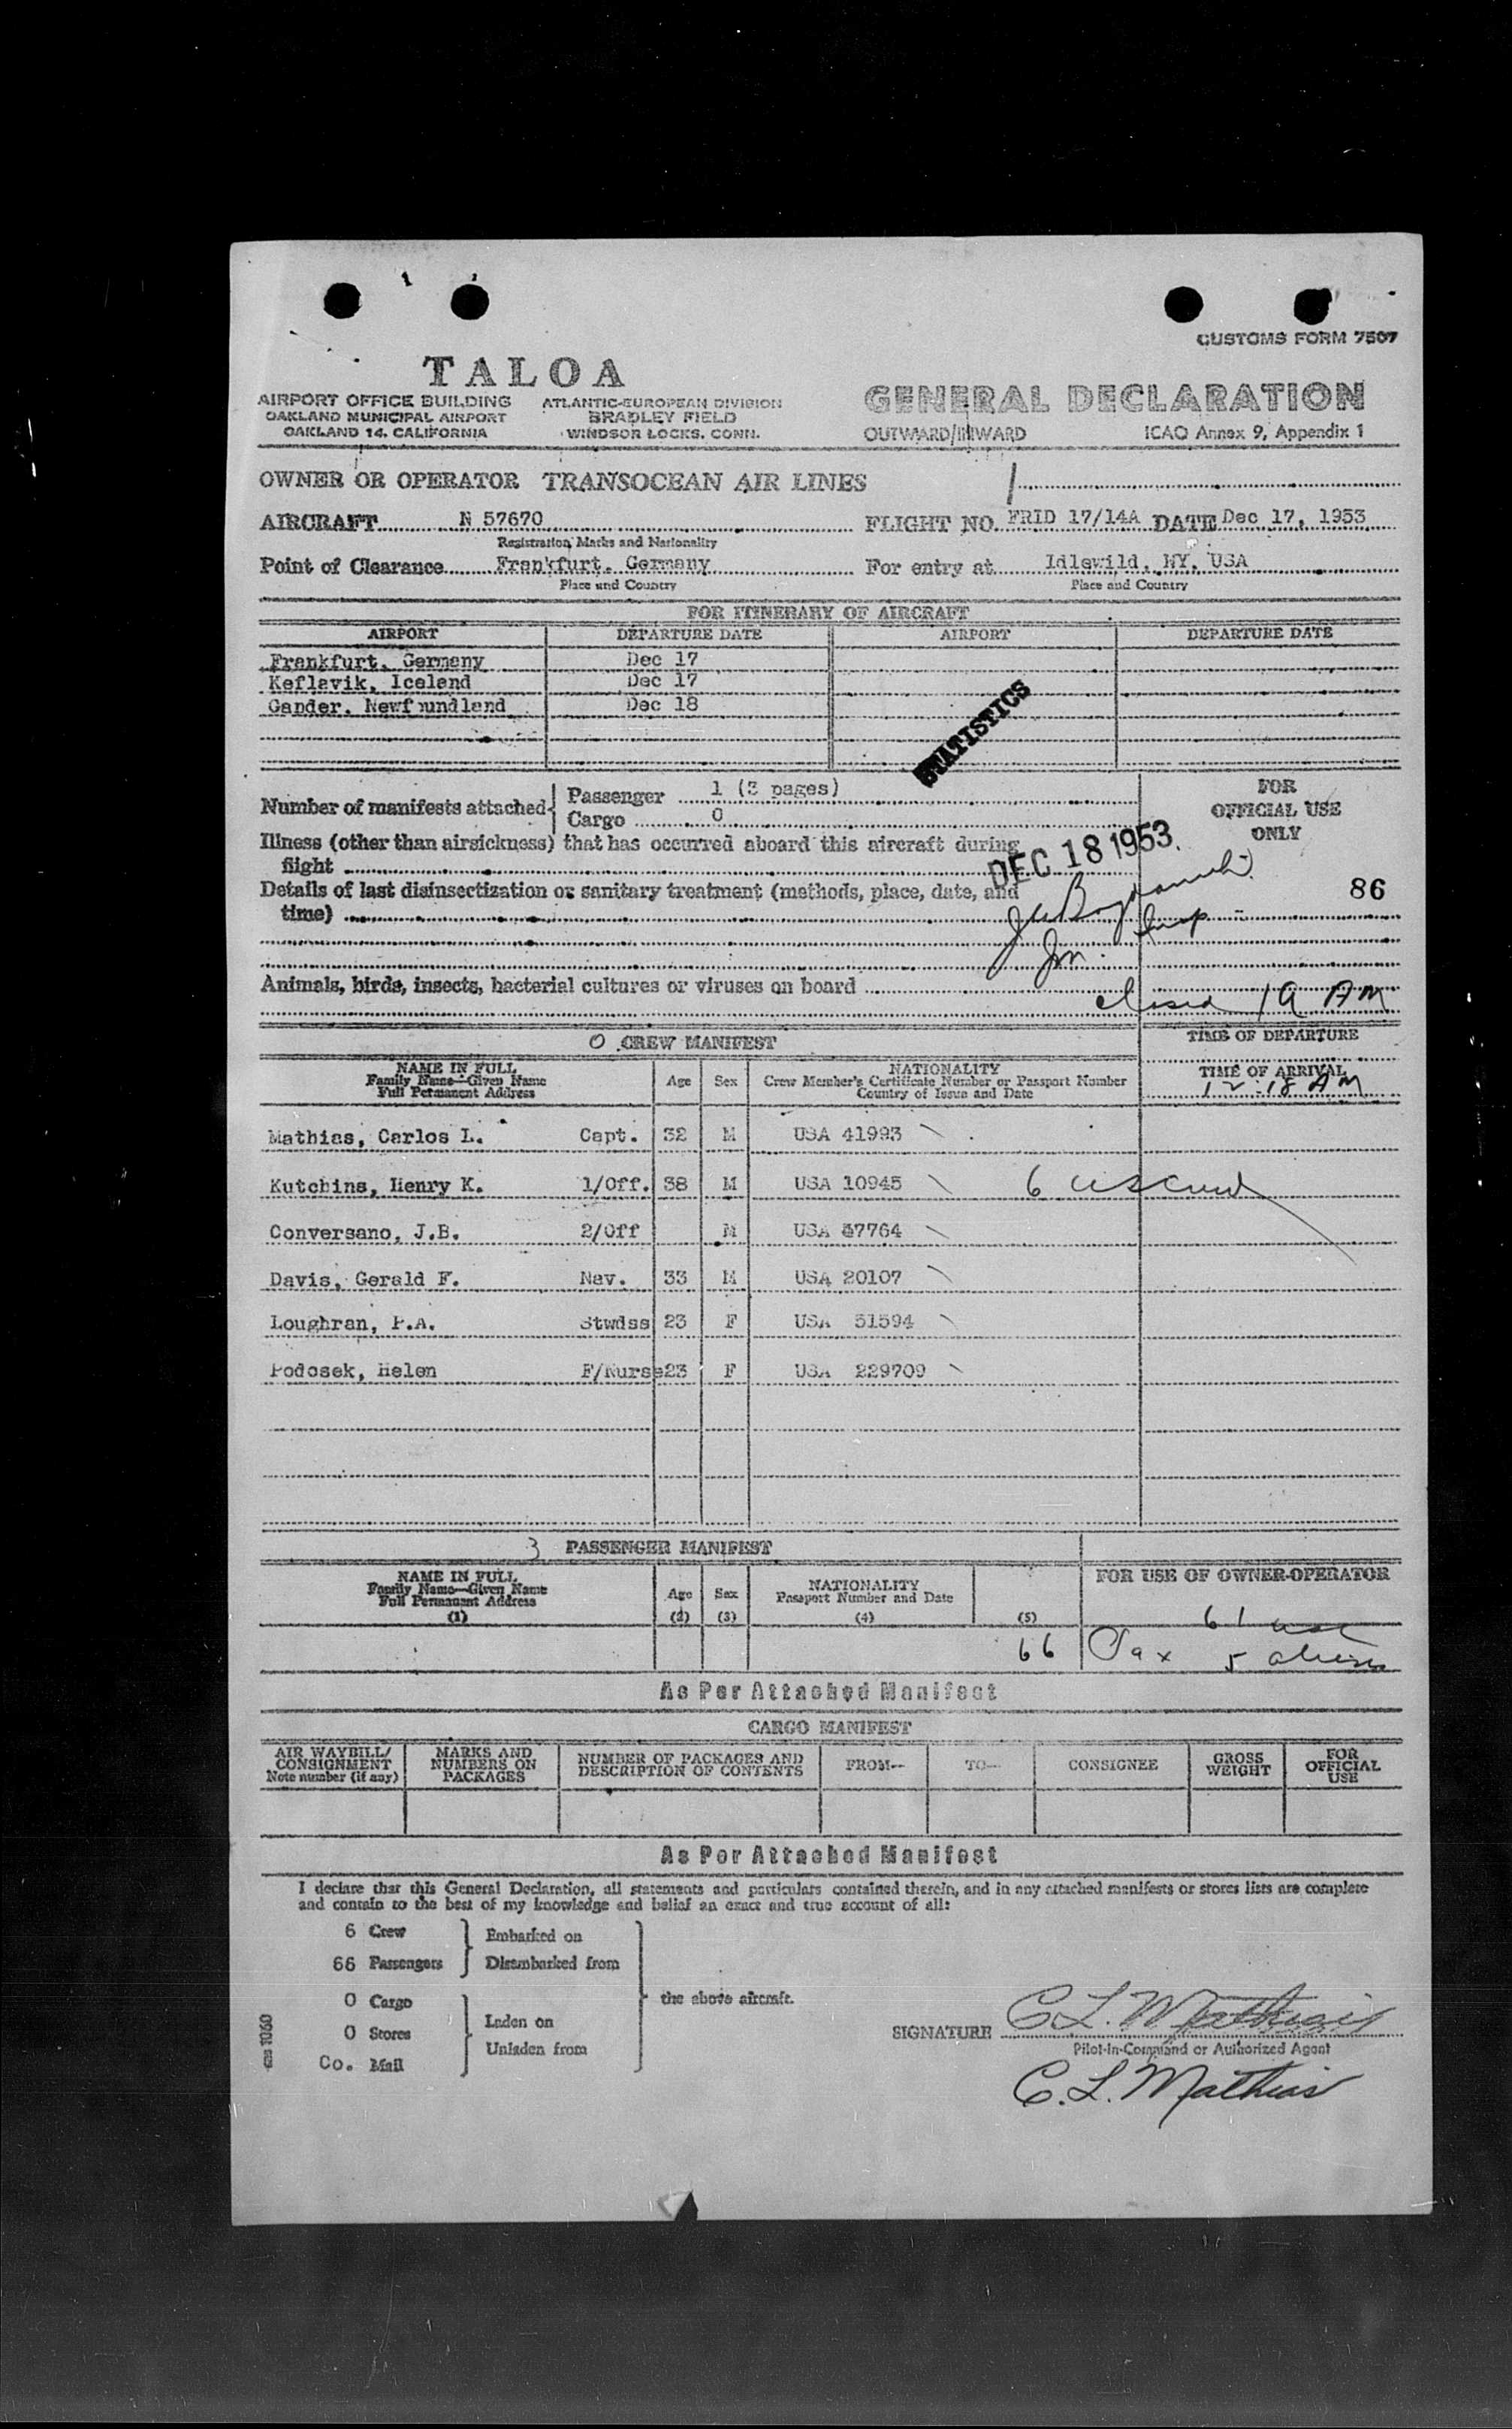 CUSTOMS FORM 7507
TALOA
AIRPORT OFFICE BUILDING
OAKLAND MUNICIPAL AIRPORT
OAKLAND 14, CALIFORNIA
ATLANTIC-EUROPEAN DIVISION
BRADLEY FIELD
WINDSOR LOCKS, CONN.
GENERAL DECLARATION
OUTWARD/INWARD ICAO Annex 9, Appendix 1
OWNER OR OPERATOR TRANSOCEAN AIR LINES
AIRCRAFT N 57670 FLIGHT NO. FRID 17/14A DATE Dec 17, 1953
Registration Marks and Nationality
Point of Clearance Frankfurt, Germany For entry at Idlewild, NY, USA
Place and Country Place and Country
FOR ITINERARY OF AIRCRAFT
AIRPORT DEPARTURE DATE AIRPORT DEPARTURE DATE
Frankfurt, Germany Dec 17
Keflavik, Iceland Dec 17
Gander, Newfoundland Dec 18
STATISTICS
Number of manifests attached
Passenger 1 (3 pages)
Cargo 0
FOR
OFFICIAL USE
ONLY
Illness (other than airsickness) that has occurred aboard this aircraft during
flight
DEC 18 1953
Details of last disinsectization or sanitary treatment (methods, place, date, and
time)
86
Animals, birds, insects, bacterial cultures or viruses on board
closed 1 A AM
0 CREW MANIFEST
TIME OF DEPARTURE
NAME IN FULL
Family Name—Given Name
Full Permanent Address
Age Sex
NATIONALITY
Crew Member's Certificate Number or Passport Number
Country of Issue and Date
TIME OF ARRIVAL
12:18 AM
Mathias, Carlos L. Capt. 32 M USA 41993
Kutchins, Henry K. 1/Off. 38 M USA 10945
6
Conversano, J.B. 2/Off M USA 37764
Davis, Gerald F. Nav. 33 M USA 20107
Loughran, P.A. Stwdss 23 F USA 31594
Podosek, Helen F/Nurse 23 F USA 229709
3 PASSENGER MANIFEST
NAME IN FULL
Family Name—Given Name
Full Permanent Address
(1)
Age
(2)
Sex
(3)
NATIONALITY
Passport Number and Date
(4)
(5)
FOR USE OF OWNER-OPERATOR
61 usc
66 Pax 5 aliens
As Per Attached Manifest
CARGO MANIFEST
AIR WAYBILL/
CONSIGNMENT
Note number (if any)
MARKS AND
NUMBERS ON
PACKAGES
NUMBER OF PACKAGES AND
DESCRIPTION OF CONTENTS
FROM—
TO—
CONSIGNEE
GROSS
WEIGHT
FOR
OFFICIAL
USE
As Per Attached Manifest
I declare that this General Declaration, all statements and particulars contained therein, and in any attached manifests or stores lists are complete
and contain to the best of my knowledge and belief an exact and true account of all:
6 Crew
66 Passengers
Embarked on
Disembarked from
0 Cargo
0 Stores
Co. Mail
Laden on
Unladen from
the above aircraft.
SIGNATURE C L. Mathias
Pilot-in-Command or Authorized Agent
C. L. Mathias